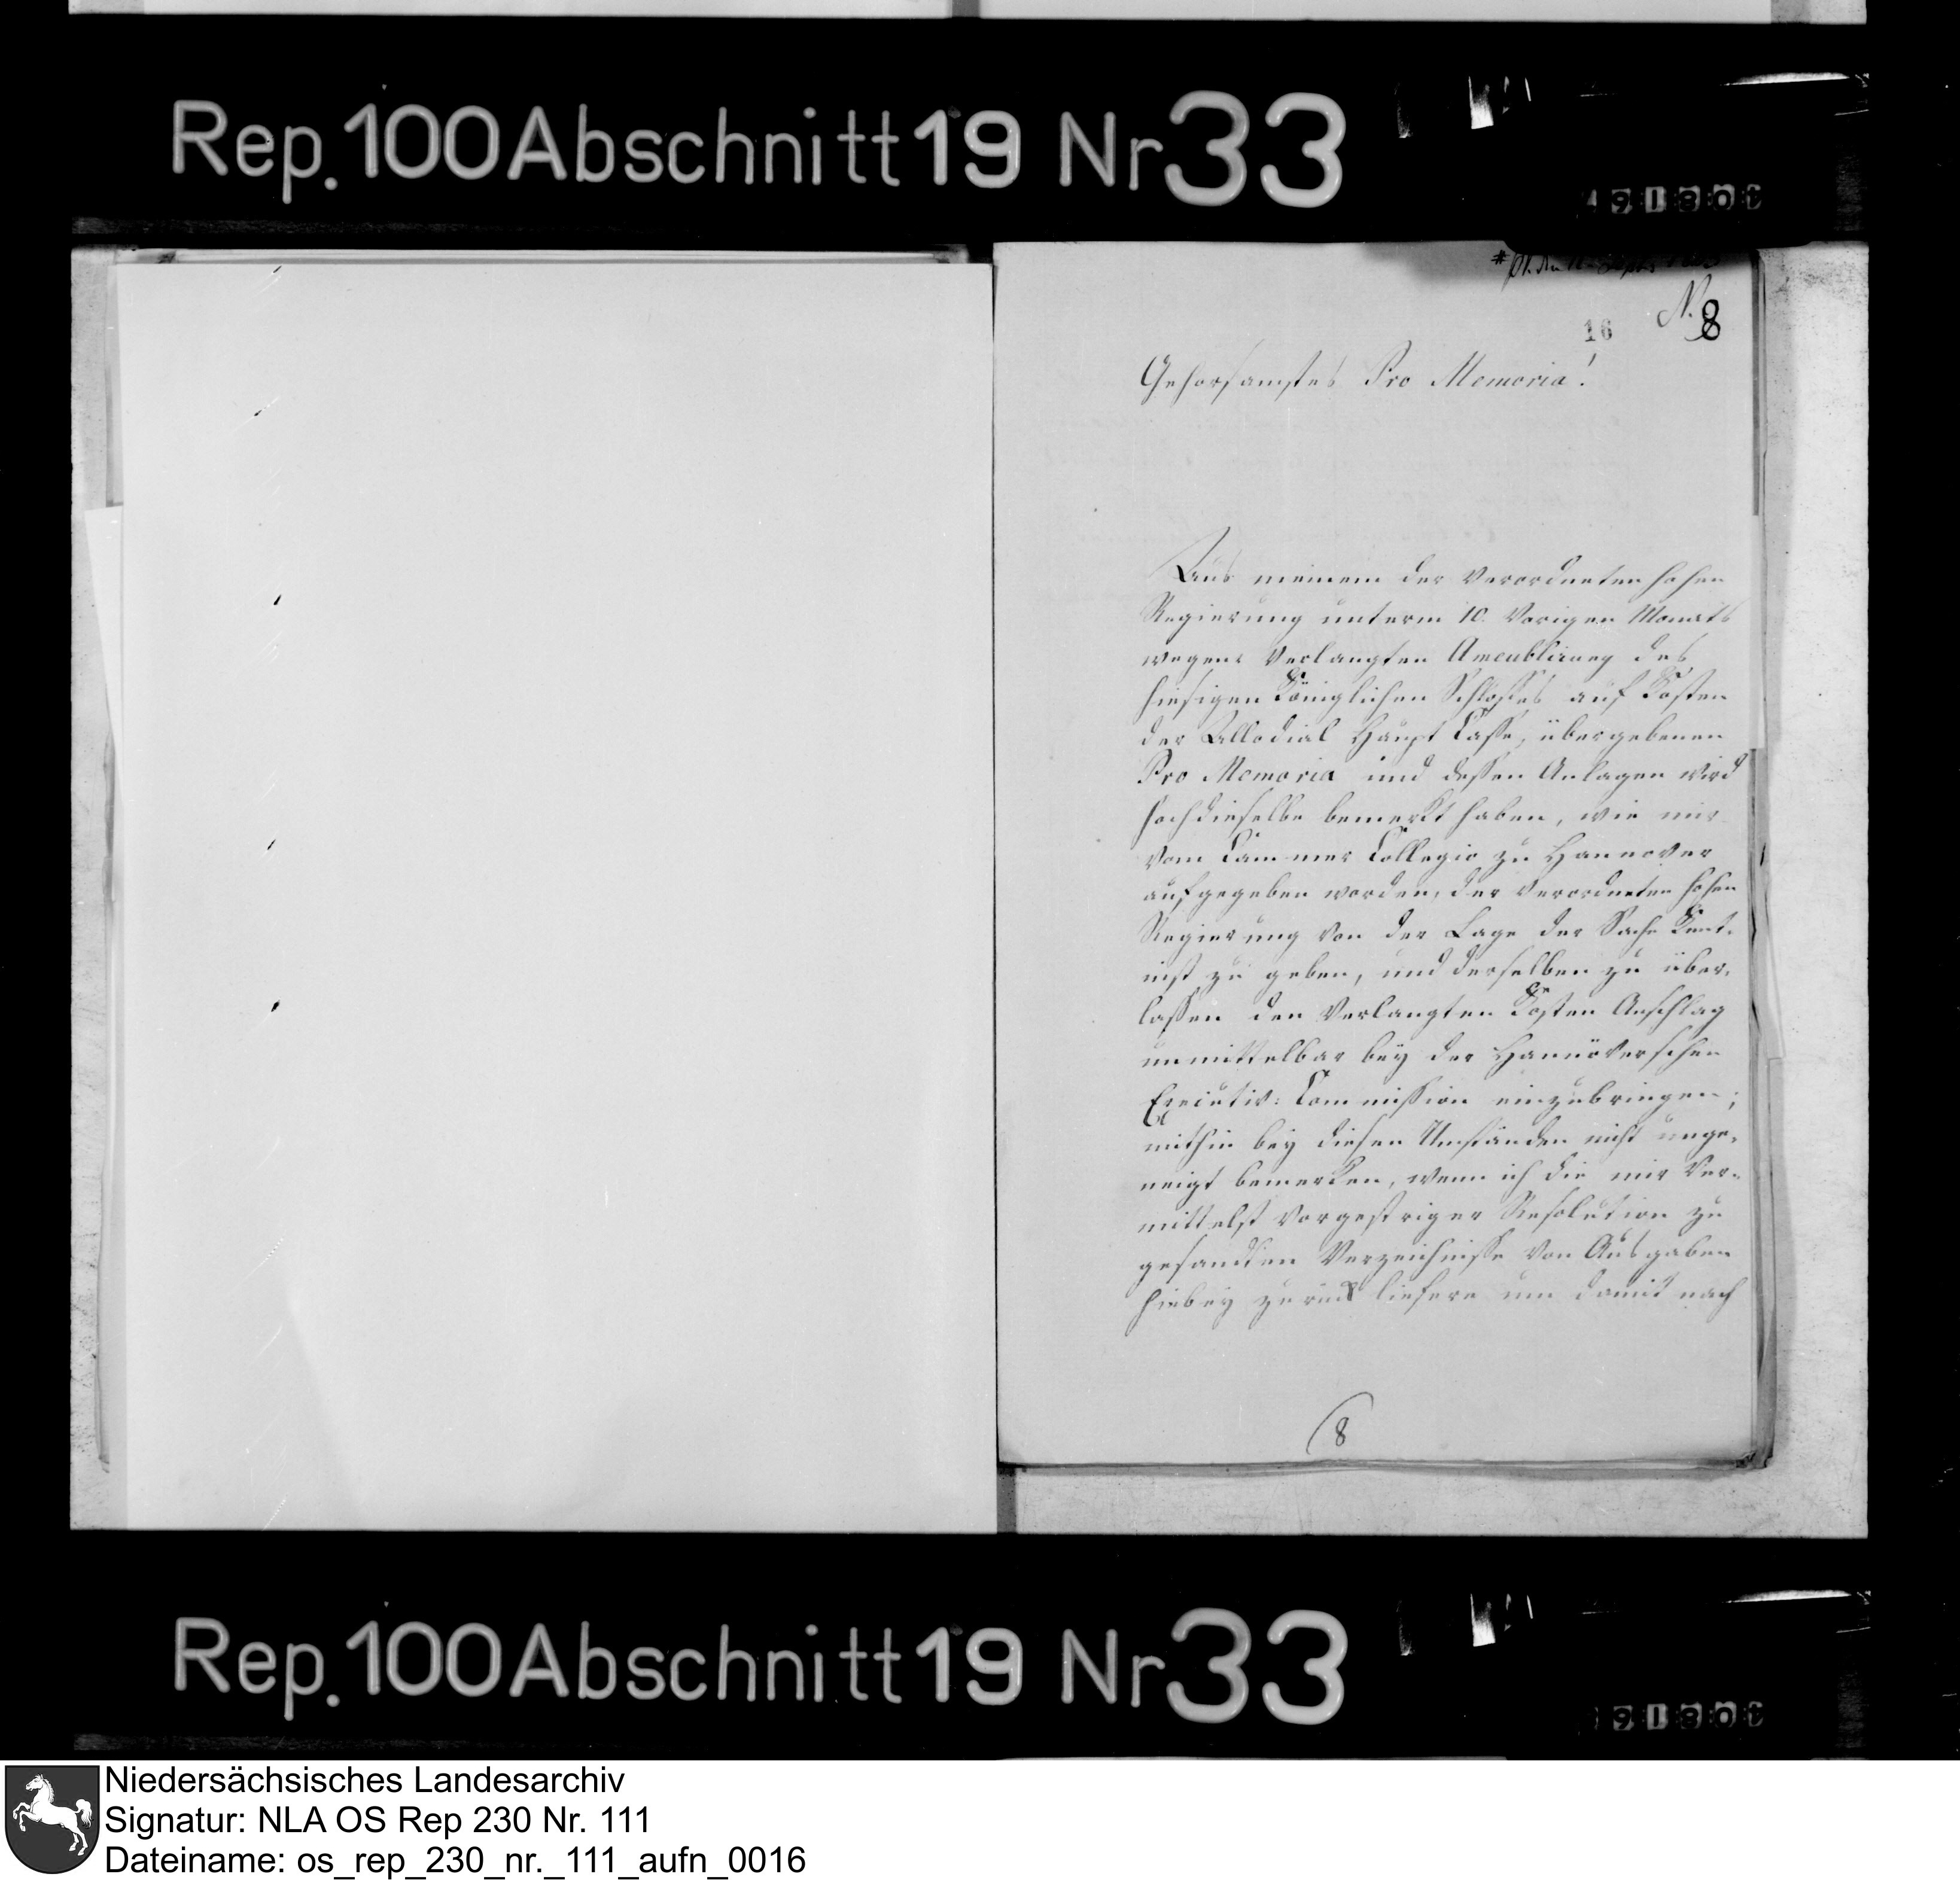 Rep. 100 Abschnitt 19 Nr 33
N. 8
16
Gehorsamstes Pro Memoria!
Aus meinem der verordneten hohen
Regierung unterm 10. vorigen Monats
wegen verlangten Ameublirung des
hiesigen Königlichen Schloßes auf Kosten
der Allodial Haupt Casse, übergebenen
Pro Memoria und dessen Anlagen wird
hochdieselbe bemerkt haben, wie mir
vom Cammer Collegio zu Hannover
aufgegeben worden, der verordneten hohen
Regierung von der Lage der Sache Kent-
niß zu geben, und derselben zu über-
lassen den verlangten Kosten Anschlag
unmittelbar bey der Hannöverschen
Executiv: Commission einzubringen;
mithin bey diesen Umständen nicht unge-
neigt bemerken, wenn ich die mir ver-
mittelst vorgestriger Resolution zu
gesandten Verzeichnisse von Ausgaben
hiebey zurück liefere um damit nach
8
Rep. 100 Abschnitt 19 Nr 33
Niedersächsisches Landesarchiv
Signatur: NLA OS Rep 230 Nr. 111
Dateiname: os_rep_230_nr._111_aufn_0016